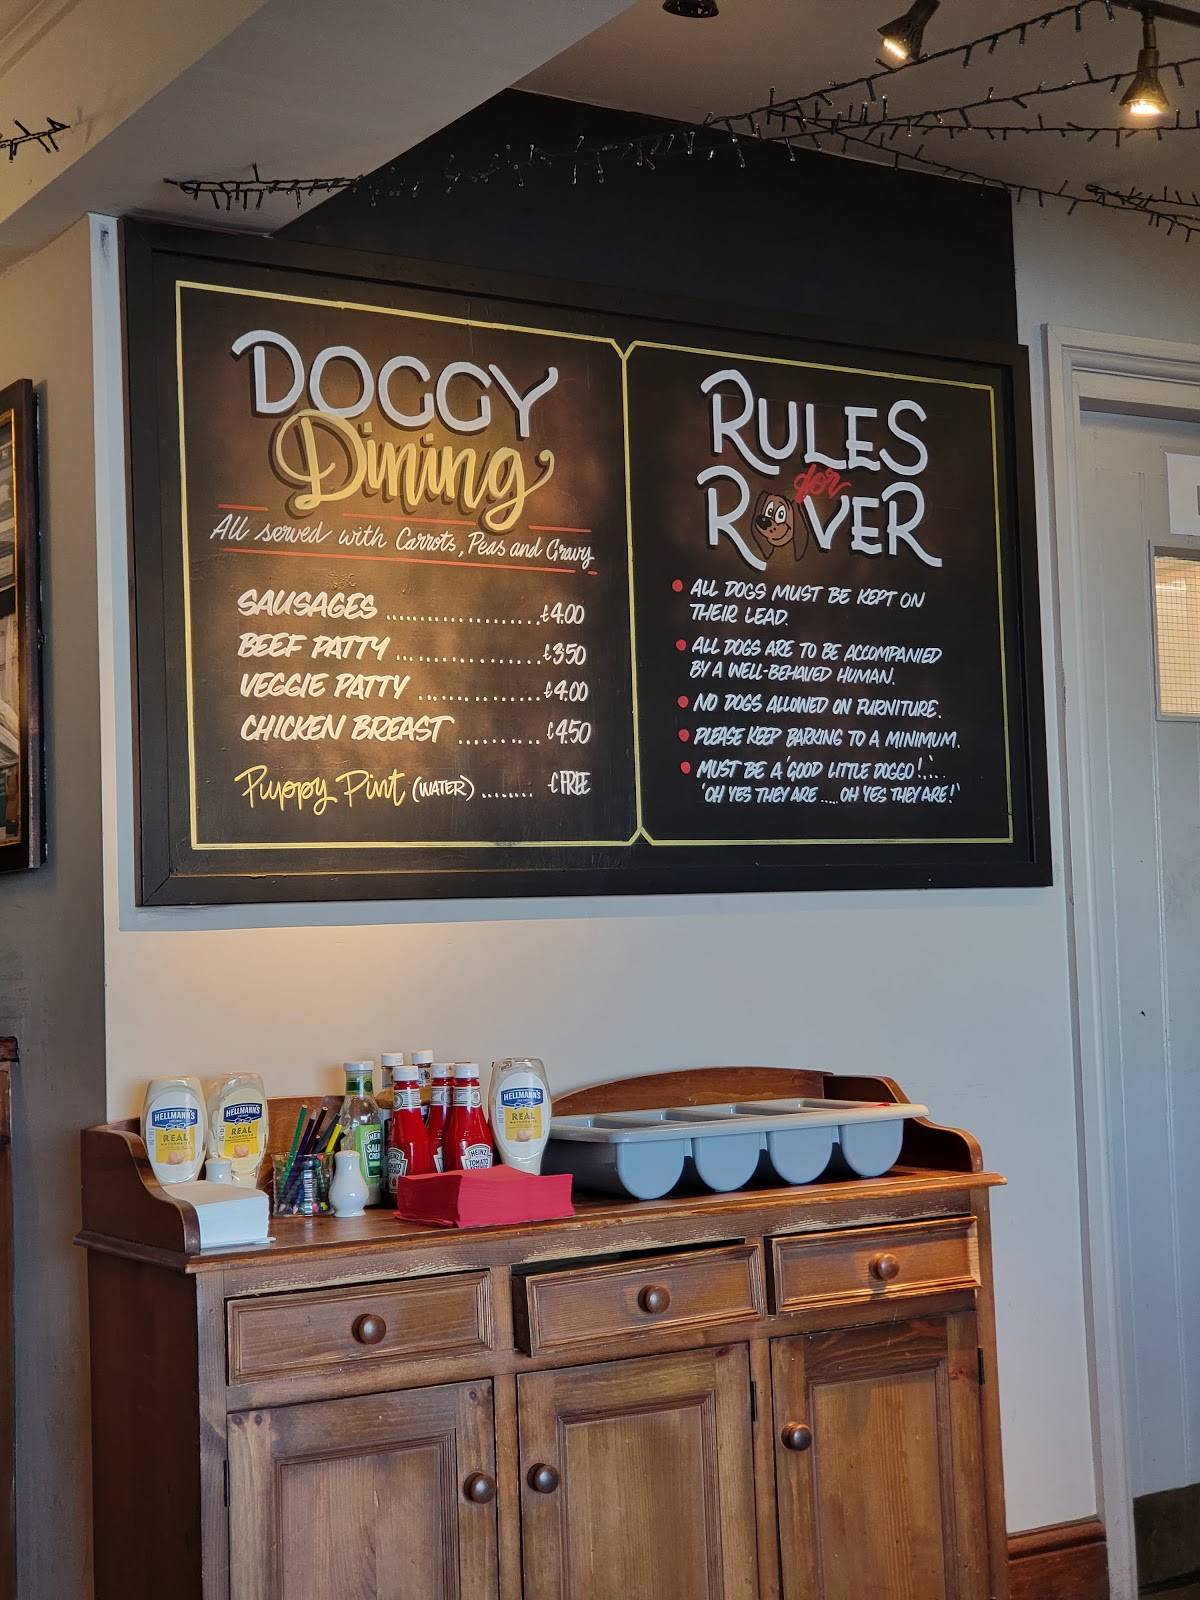 DOGGY
Dining
All served with Carrots, Peas and Gravy
SAUSAGES ...................£4.00
BEEF PATTY ..................£3.50
VEGGIE PATTY ...............£4.00
CHICKEN BREAST ..........£4.50
Puppy Pint (WATER) ........£FREE
RULES
for
ROVER
• ALL DOGS MUST BE KEPT ON
THEIR LEAD.
• ALL DOGS ARE TO BE ACCOMPANIED
BY A WELL-BEHAVED HUMAN.
• NO DOGS ALLOWED ON FURNITURE.
• PLEASE KEEP BARKING TO A MINIMUM.
• MUST BE A 'GOOD LITTLE DOGGO!'...
'OH YES THEY ARE ..... OH YES THEY ARE!'
HELLMANN'S
REAL
HELLMANN'S
REAL
HEINZ
TOMATO
HELLMANN'S
REAL